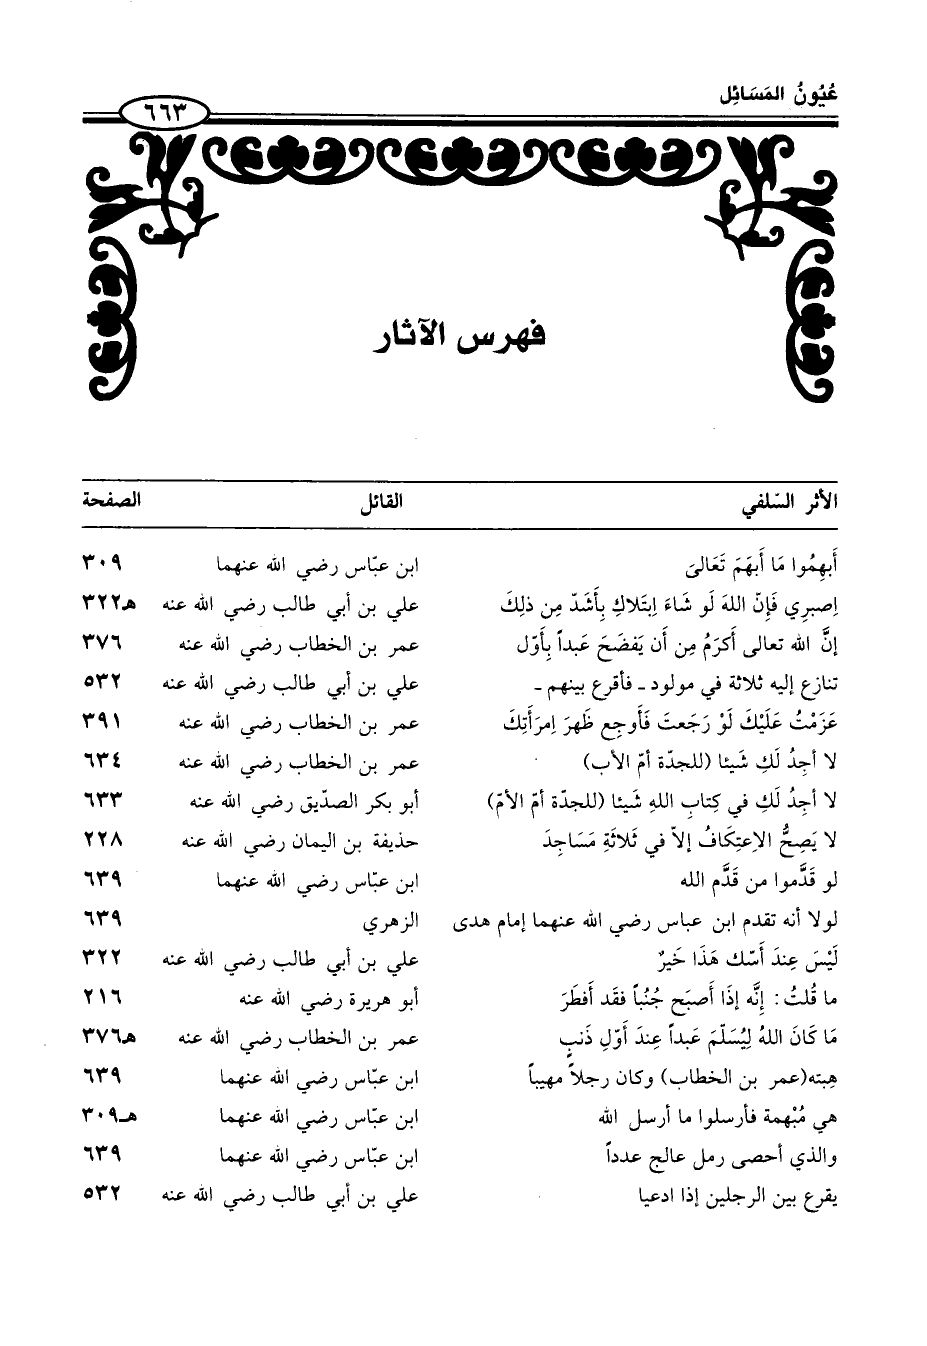 عُيُونُ المَسَائِل
٦٦٣
فهرس الآثار
الأثر السّلفي القائل الصفحة
أَبهِمُوا مَا أَبهَمَ تَعَالىَ ابن عبّاس رضي الله عنهما ٣٠٩
اِصبِرِي فَإِنّ اللهَ لَو شَاءَ اِبتَلاكِ بِأَشَدّ مِن ذلِكَ علي بن أبي طالب رضي الله عنه هـ٣٢٢
إنَّ الله تعالى أَكرَمُ مِن أَن يَفضَحَ عَبداً بِأَوّل عمر بن الخطاب رضي الله عنه ٣٧٦
تنازع إليه ثلاثة في مولود ـ فأقرع بينهم ـ علي بن أبي طالب رضي الله عنه ٥٣٢
عَزَمْتُ عَلَيْكَ لَوْ رَجَعتَ فَأَوجِع ظَهرَ اِمرَأَتِكَ عمر بن الخطاب رضي الله عنه ٣٩١
لا أَجِدُ لَكِ شَيئا (للجدّة أمّ الأب) عمر بن الخطاب رضي الله عنه ٦٣٤
لا أَجِدُ لَكِ في كِتابِ اللهِ شَيئا (للجدّة أمّ الأمّ) أبو بكر الصدّيق رضي الله عنه ٦٣٣
لا يَصِحُّ الاِعتِكَافُ إلاّ في ثَلاثَةِ مَسَاجِدَ حذيفة بن اليمان رضي الله عنه ٢٢٨
لو قَدَّموا من قَدَّم الله ابن عبّاس رضي الله عنهما ٦٣٩
لولا أنه تقدم ابن عباس رضي الله عنهما إمام هدى الزهري ٦٣٩
لَيْسَ عِندَ أسّك هَذَا خَيرٌ علي بن أبي طالب رضي الله عنه ٣٢٢
ما قُلتُ: إنَّه إذَا أَصبَح جُنُباً فقَد أَفطَرَ أبو هريرة رضي الله عنه ٢١٦
مَا كَانَ اللهُ لِيُسَلّمَ عَبداً عِندَ أوّلِ ذَنبٍ عمر بن الخطاب رضي الله عنه هـ٣٧٦
هِبته(عمر بن الخطاب) وكان رجلاً مهيباً ابن عبّاس رضي الله عنهما ٦٣٩
هي مُبْهمة فأرسلوا ما أرسل الله ابن عبّاس رضي الله عنهما هـ٣٠٩
والذي أحصى رمل عالج عدداً ابن عبّاس رضي الله عنهما ٦٣٩
يقرع بين الرجلين إذا ادعيا علي بن أبي طالب رضي الله عنه ٥٣٢